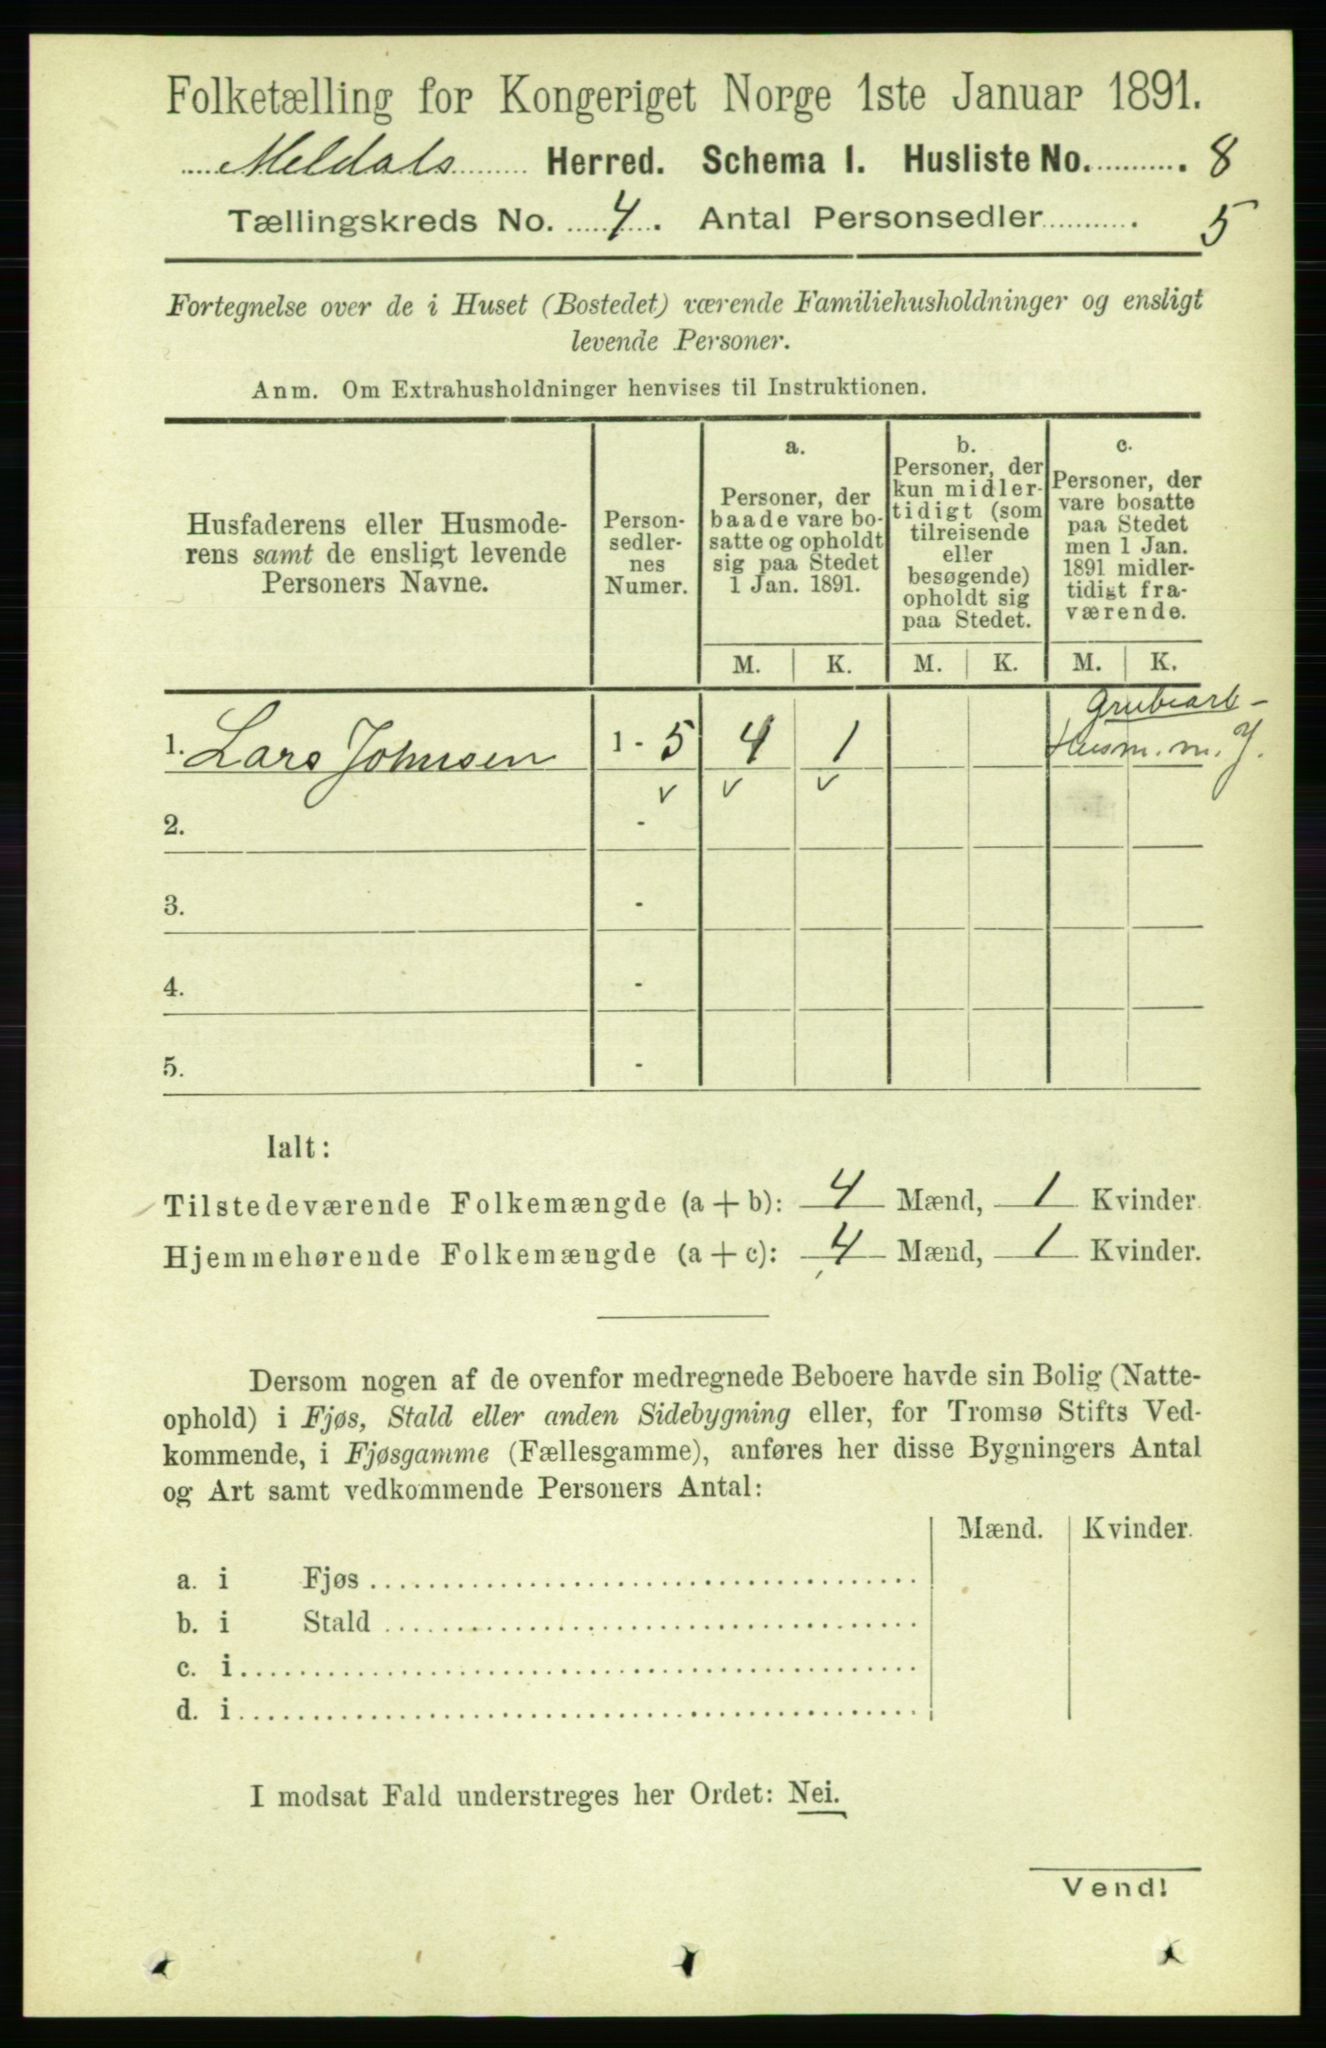 Folketælling for Kongeriget Norge 1ste Januar 1891.
Meldals Herred. Schema I. Husliste No. 8
Tællingskreds No. 4. Antal Personsedler 5
Fortegnelse over de i Huset (Bostedet) værende Familiehusholdninger og ensligt
levende Personer.
Anm. Om Extrahusholdninger henvises til Instruktionen.
Husfaderens eller Husmode-
rens samt de ensligt levende
Personers Navne.
Person-
sedler-
nes
Numer.
a.
Personer, der
baade vare bo-
satte og opholdt
sig paa Stedet
1 Jan. 1891.
b.
Personer, der
kun midler-
tidigt (som
tilreisende
eller
besøgende)
opholdt sig
paa Stedet.
c.
Personer, der
vare bosatte
paa Stedet
men 1 Jan.
1891 midler-
tidigt fra-
værende.
M. K. M. K. M. K.
Grubearb-
1. Lars Johnsen 1 - 5 4 1 Husm. m. J.
v v v
2. -
3. -
4. -
5. -
Ialt:
Tilstedeværende Folkemængde (a + b): 4 Mænd, 1 Kvinder.
Hjemmehørende Folkemængde (a + c): 4 Mænd, 1 Kvinder.
Dersom nogen af de ovenfor medregnede Beboere havde sin Bolig (Natte-
ophold) i Fjøs, Stald eller anden Sidebygning eller, for Tromsø Stifts Ved-
kommende, i Fjøsgamme (Fællesgamme), anføres her disse Bygningers Antal
og Art samt vedkommende Personers Antal:
Mænd. Kvinder.
a. i Fjøs
b. i Stald
c. i
d. i
I modsat Fald understreges her Ordet: Nei.
Vend!